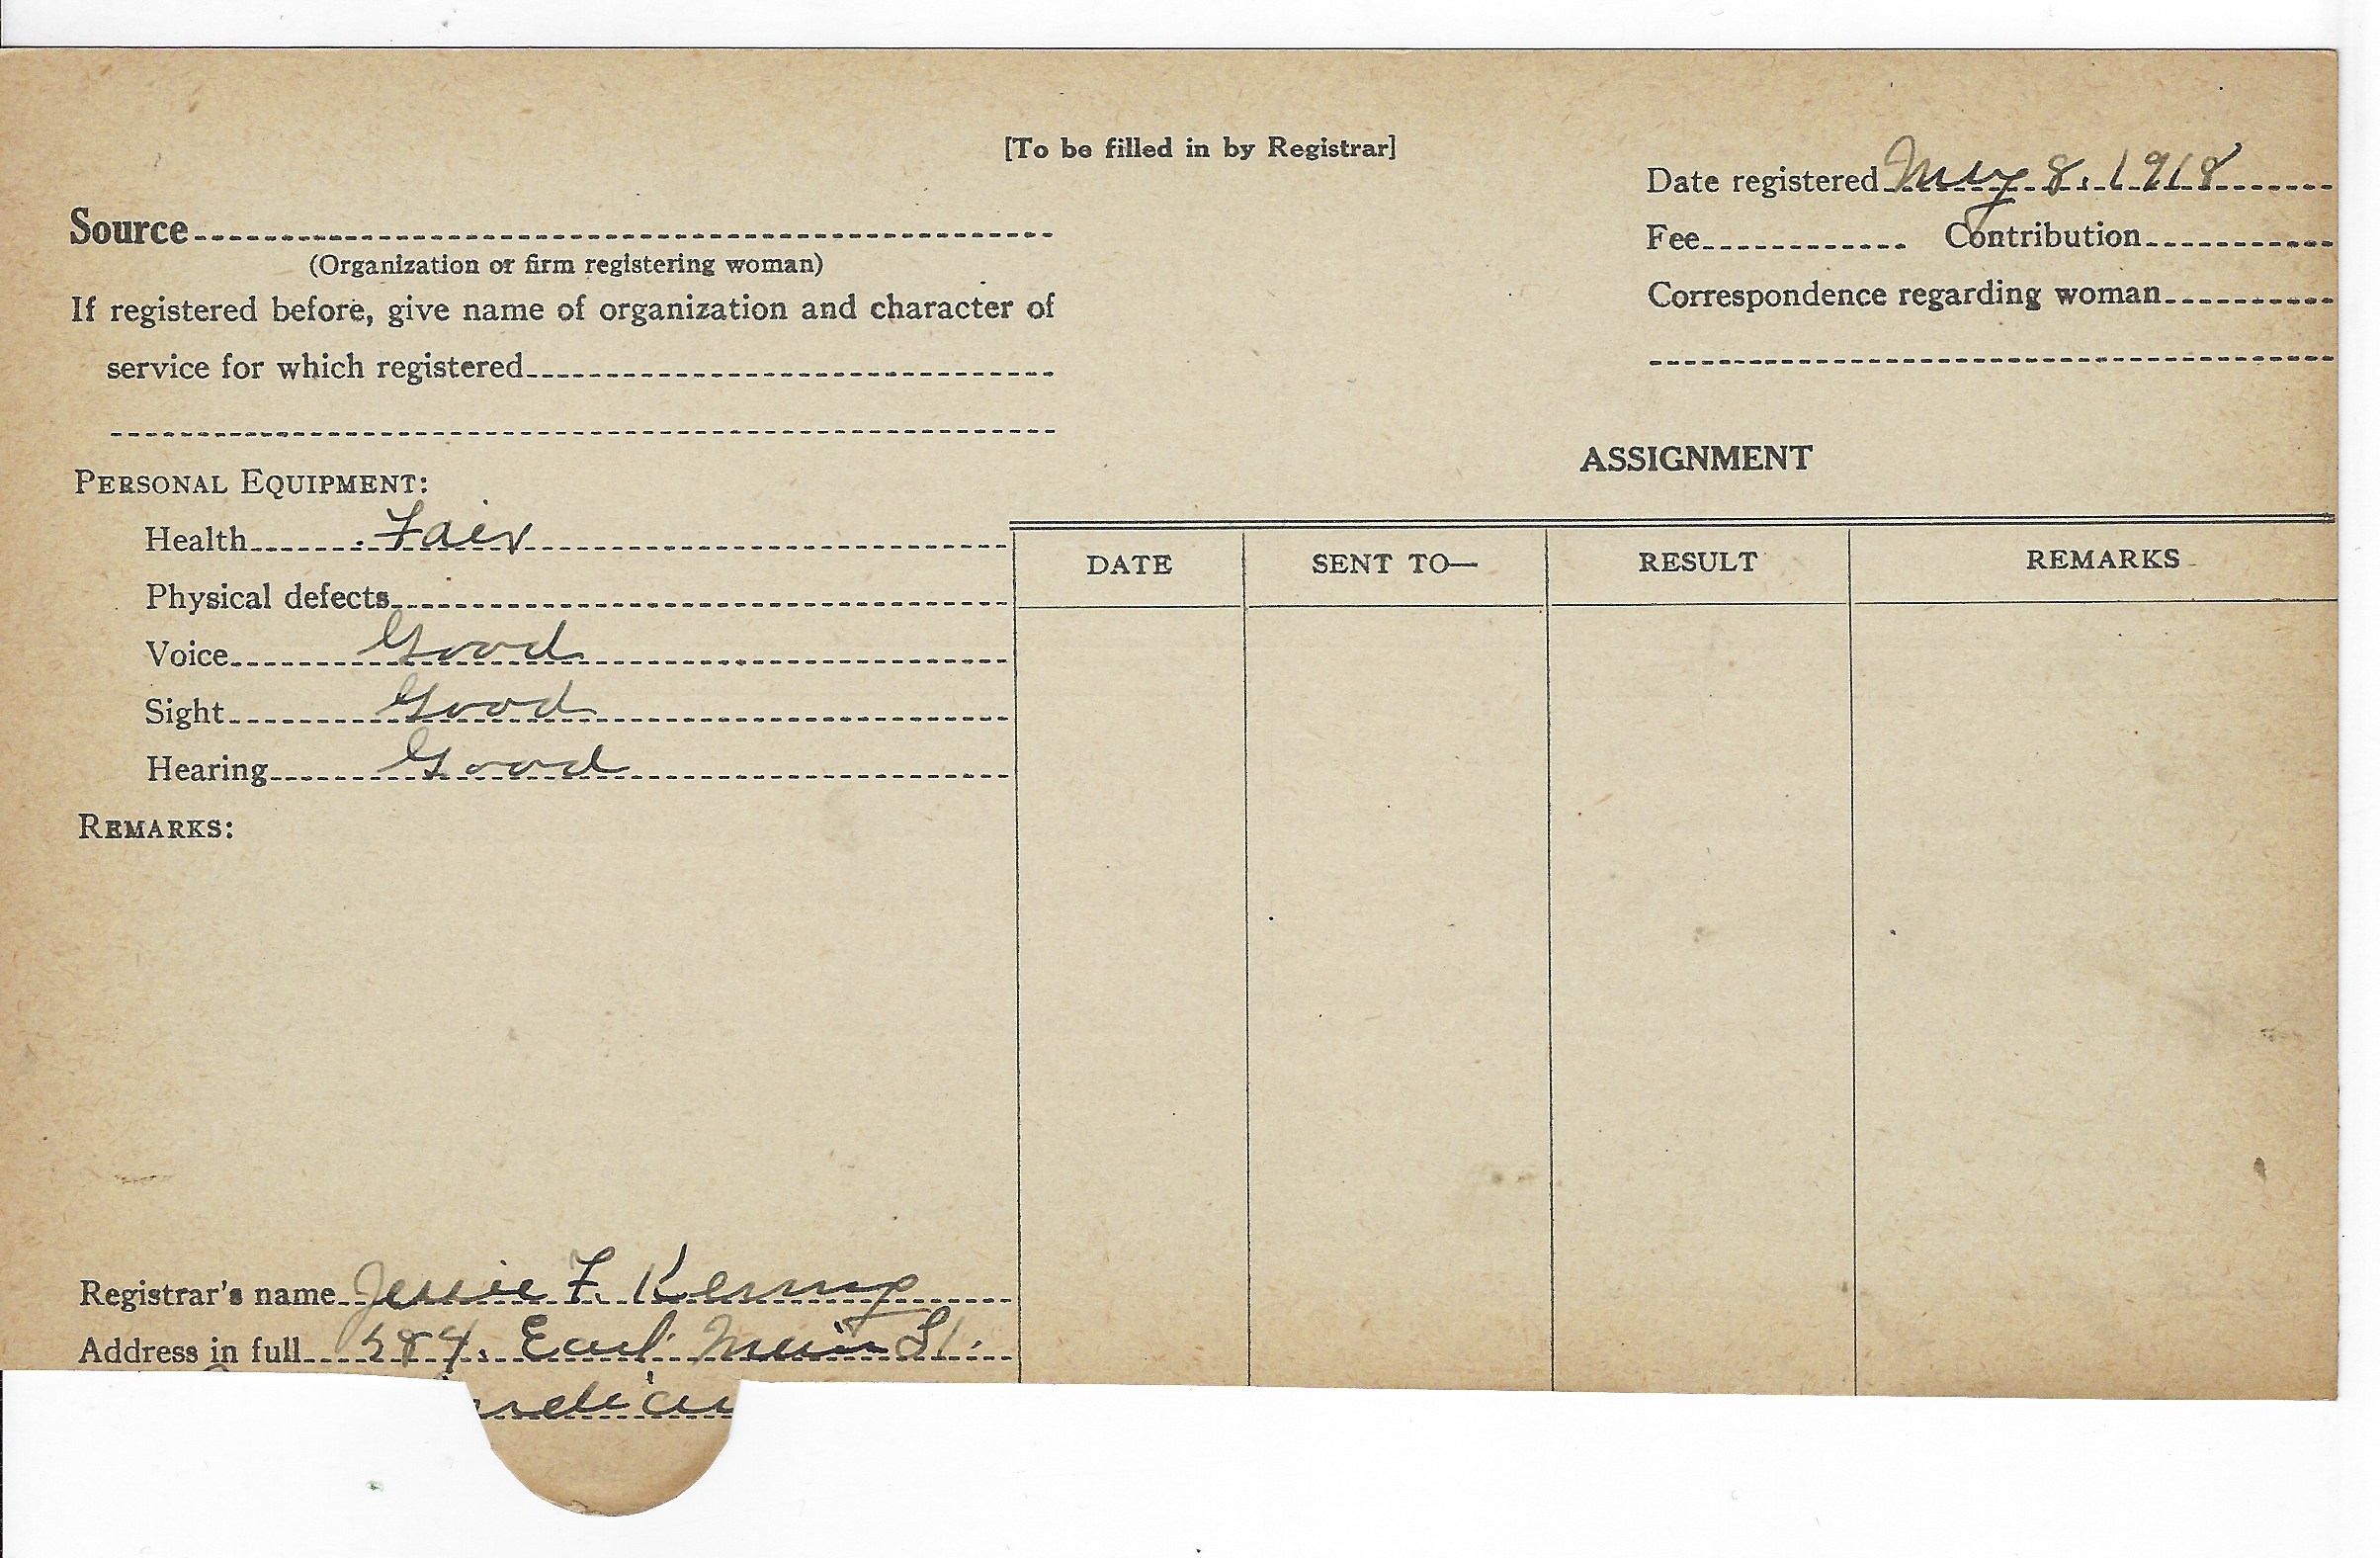 [To be filled in by Registrar]
Date registered May 8. 1918
Source
Fee Contribution
(Organization or firm registering woman)
Correspondence regarding woman
If registered before, give name of organization and character of
service for which registered
ASSIGNMENT
PERSONAL EQUIPMENT:
Health Fair
Physical defects
Voice Good
Sight Good
Hearing Good
DATE SENT TO— RESULT REMARKS
REMARKS:
Registrar's name Jessie F. Kemp
Address in full 584. East Main St.